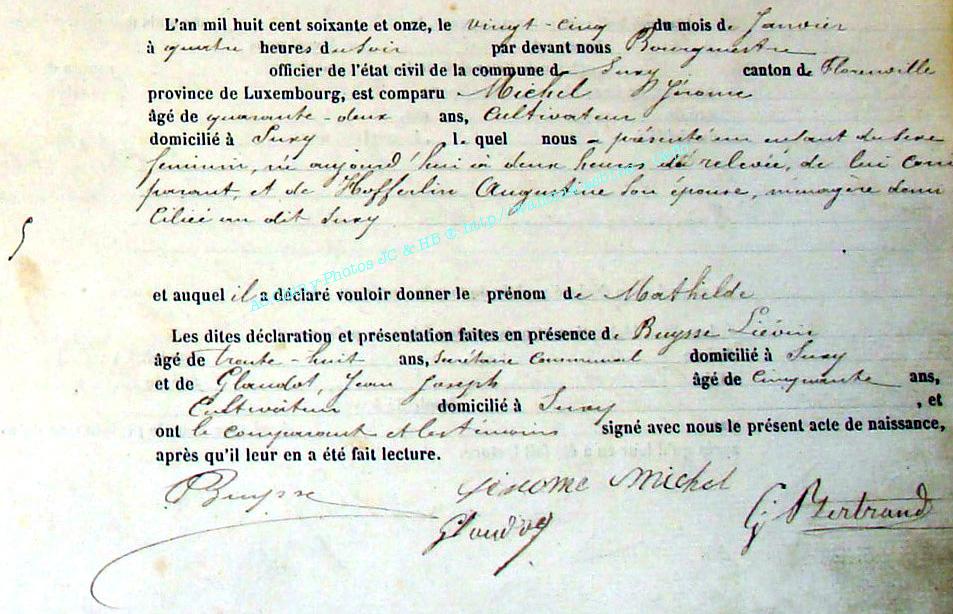 L'an mil huit cent soixante et onze, le vingt-cinq du mois de Janvier
à quatre heures du Soir par devant nous Bourgmestre
officier de l'état civil de la commune de Suxy canton de Florenville
province de Luxembourg, est comparu Michel Jérome
âgé de quarante-deux ans, Cultivateur
domicilié à Suxy lequel nous a présenté un enfant du sexe
feminin, né aujourd'hui à deux heures de relevée, de lui com
parant, et de Hofferlin Augustine son épouse, menagère domi
ciliée au dit Suxy
et auquel il a déclaré vouloir donner le prénom de Mathilde
Les dites déclaration et présentation faites en présence de Buysse Liévin
âgé de trente-huit ans, secrétaire communal domicilié à Suxy
et de Glaudot Jean Joseph âgé de cinquante ans,
Cultivateur domicilié à Suxy , et
ont le comparant et les témoins signé avec nous le présent acte de naissance,
après qu'il leur en a été fait lecture.
Buysse Jérome Michel
Glaudot G Bertrand
Photos JC & HB @ http://